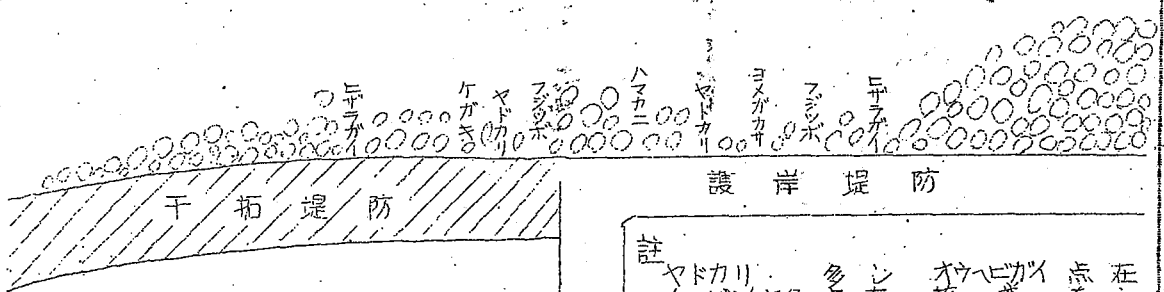 ヒザラガイ
ケガキ
ヤドカリ
フジツボ
ハマカニ
ヤドカリ
ヨメガカサ
フジツボ
ヒザラガイ
干拓堤防
護岸堤防
註
ヤドカリ 多シ オウヘビガイ 点在